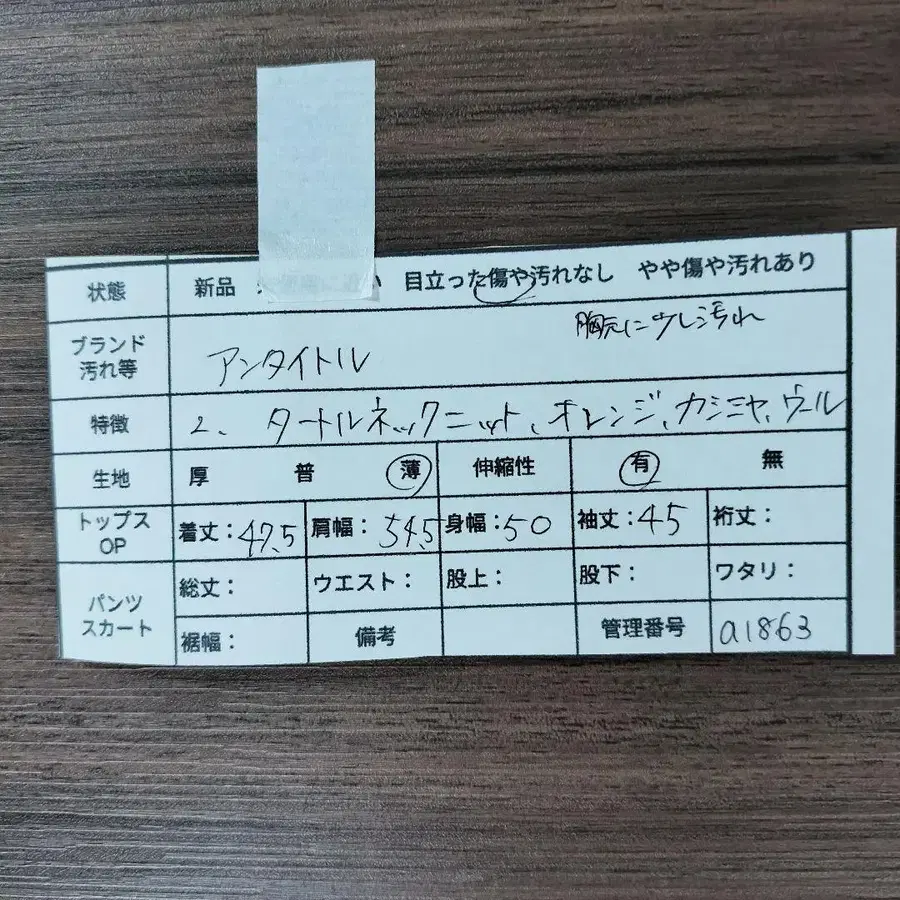 状態 新品 い 目立った傷や汚れなし やや傷や汚れあり
ブランド 汚れ等 アンタイトル 胸元に少し汚れ
特徴 2、タートルネックニット、オレンジ、カシミヤ、ウール
生地 厚 普 薄 伸縮性 有 無
トップス OP 着丈：47.5 肩幅：54.5 身幅：50 袖丈：45 裄丈：
パンツ スカート 総丈： ウエスト： 股上： 股下： ワタリ：
裾幅： 備考 管理番号 a1863